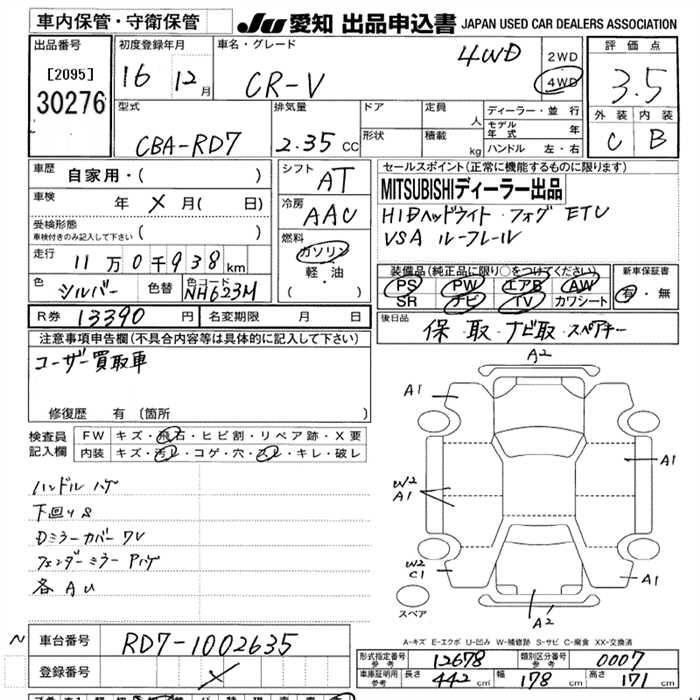 車内保管・守衛保管 JU 愛知 出品申込書 JAPAN USED CAR DEALERS ASSOCIATION
出品番号 初度登録年月 車名・グレード 4WD 2WD 評価点
[2095] 16 12月 CR-V 4WD 3.5
30276 型式 排気量 ドア 定員 人 ディーラー・並行 外装 内装
CBA-RD7 2.35 CC 形状 積載 kg モデル年式 年 C B
ハンドル 左・右
車歴 自家用・( ) シフト AT セールスポイント(正常に機能するものに限ります)
車検 年 X 月( 日) 冷房 AAC MITSUBISHIディーラー出品
受検形態 ( ) HIDヘッドライト・フォグ ETC
車検付きのみ記入して下さい 燃料 VSA ルーフレール
走行 11万0千938km ガソリン 装備品(純正品に限り○をつけてください) 新車保証書
色 シルバー 色替 色コード NH623M 軽・油 PS PW エアB AW 有・無
( ) SR ナビ TV カワシート
R券 13390 円 名変期限 月 日 後日品 保・取・ナビ取・スペアキー
注意事項申告欄(不具合内容等は具体的に記入して下さい)
ユーザー買取車
修復歴 有(箇所 )
検査員 FW キズ・飛石・ヒビ割・リペア跡・X要
記入欄 内装 キズ・汚レ・コゲ・穴・スレ・キレ・破レ
ハンドルハゲ
下回りS
Dミラーカバー
フェンダーミラー
各AU
A2
A1 A1
W2
A1 A1
W2
C1 A1
A2
スペア
A-キズ E-エクボ U-凹み W-補修跡 S-サビ C-腐食 XX-交換済
N 車台番号 RD7-1002635
登録番号 X
形式指定番号 参考 12678 類別区分番号 参考 0007
車庫証明用 参考 長さ 442 cm 幅 178 cm 高さ 171 cm